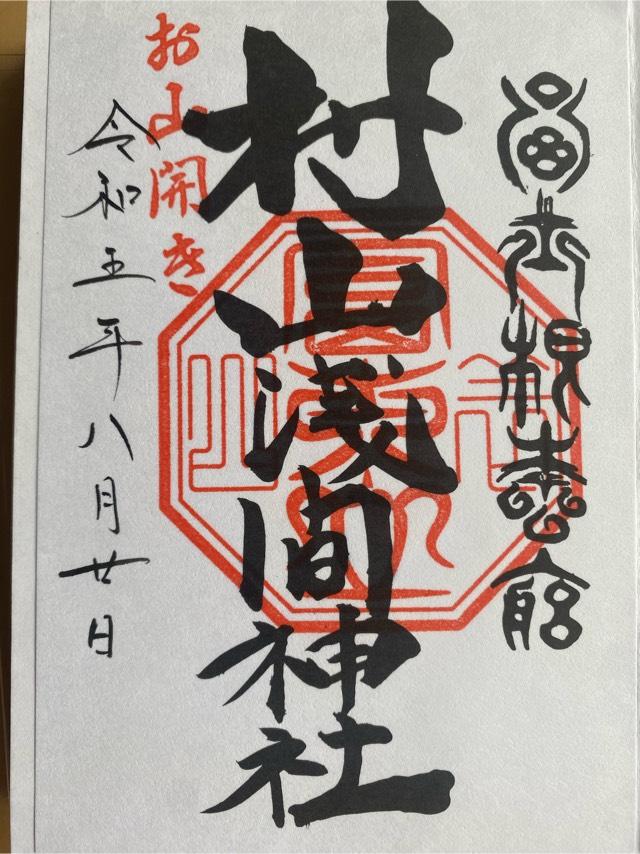 冨士根本宮
村山浅間神社
お山開き
令和五年八月廿日